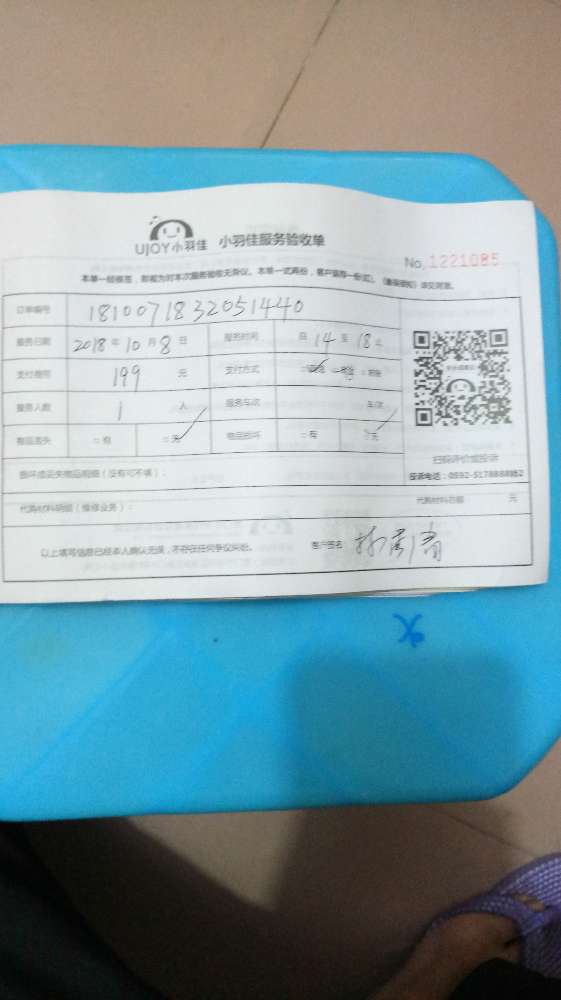 UJOY小羽佳 小羽佳服务验收单
No.1221085
本单一经签签，即视为对本次服务验收无异议。本单一式两份，客户留存一份
订单编号 1810071832051440
服务日期 2018年10月8日 服务时间 自14至18点
支付费用 199元 支付方式
服务人数 1人 服务车次 车/次
物品丢失 □有 □无 物品损坏 □有 □无
扫码评价或投诉
损坏或丢失物品明细（没有可不填）：
投诉电话：0592-5178888
代购材料明细（维修业务）： 代购材料总额 元
以上填写信息已经本人确认无误，不存在任何争议纠纷。 客户签名：